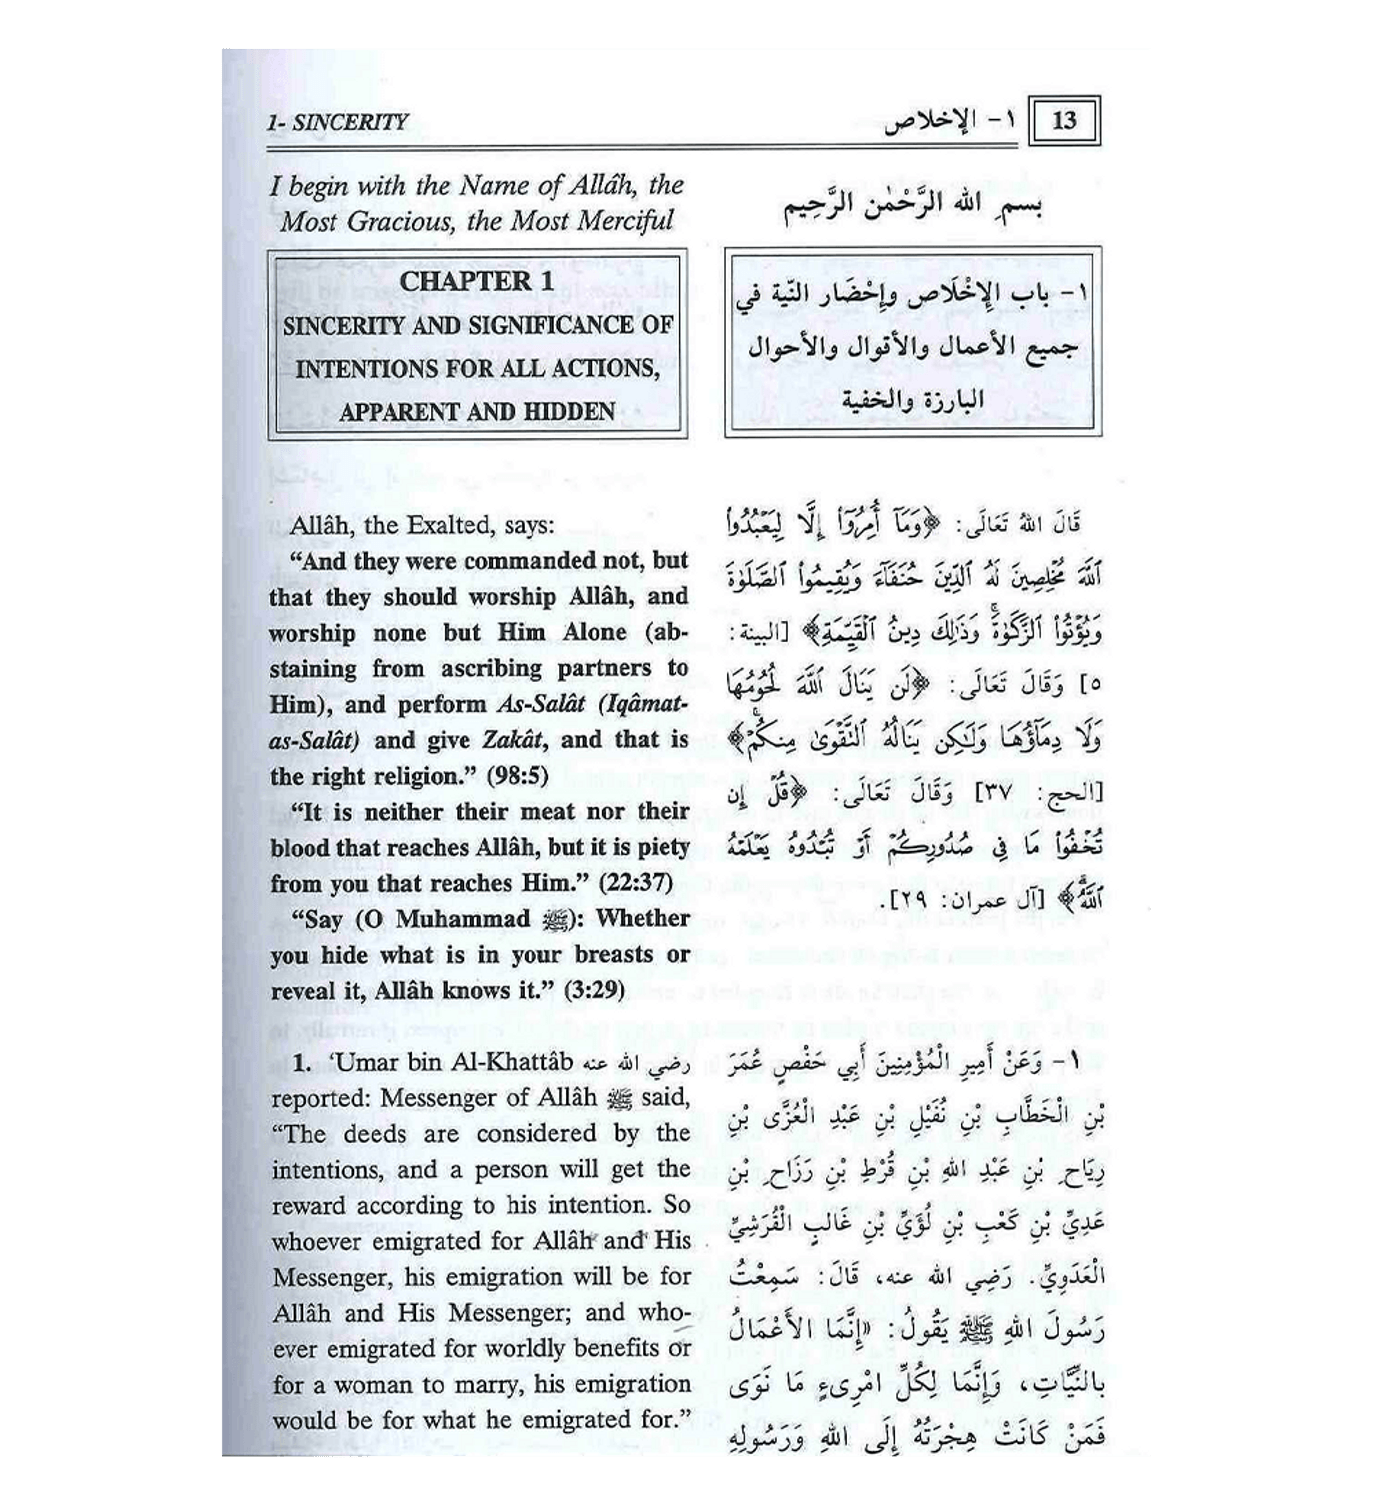 1- SINCERITY
١- الإخلاص
13
I begin with the Name of Allâh, the
Most Gracious, the Most Merciful
CHAPTER 1
SINCERITY AND SIGNIFICANCE OF
INTENTIONS FOR ALL ACTIONS,
APPARENT AND HIDDEN
Allâh, the Exalted, says:
“And they were commanded not, but
that they should worship Allâh, and
worship none but Him Alone (ab-
staining from ascribing partners to
Him), and perform As-Salât (Iqâmat-
as-Salât) and give Zakât, and that is
the right religion.” (98:5)
“It is neither their meat nor their
blood that reaches Allâh, but it is piety
from you that reaches Him.” (22:37)
“Say (O Muhammad ﷺ): Whether
you hide what is in your breasts or
reveal it, Allâh knows it.” (3:29)
1. ‘Umar bin Al-Khattâb رضي الله عنه
reported: Messenger of Allâh ﷺ said,
“The deeds are considered by the
intentions, and a person will get the
reward according to his intention. So
whoever emigrated for Allâh and His
Messenger, his emigration will be for
Allâh and His Messenger; and who-
ever emigrated for worldly benefits or
for a woman to marry, his emigration
would be for what he emigrated for.”
بسم الله الرَّحْمٰن الرَّحِيم
١- باب الإِخْلَاص وإِحْضَار النّية في
جميع الأعمال والأقوال والأحوال
البارزة والخفية
قَالَ اللهُ تَعَالَى: ﴿وَمَآ أُمِرُوٓا۟ إِلَّا لِيَعْبُدُوا۟
ٱللَّهَ مُخْلِصِينَ لَهُ ٱلدِّينَ حُنَفَآءَ وَيُقِيمُوا۟ ٱلصَّلَوٰةَ
وَيُؤْتُوا۟ ٱلزَّكَوٰةَۚ وَذَٰلِكَ دِينُ ٱلْقَيِّمَةِ﴾ [البينة:
٥] وَقَالَ تَعَالَى: ﴿لَن يَنَالَ ٱللَّهَ لُحُومُهَا
وَلَا دِمَآؤُهَا وَلَٰكِن يَنَالُهُ ٱلتَّقْوَىٰ مِنكُمْۚ﴾
[الحج: ٣٧] وَقَالَ تَعَالَى: ﴿قُلْ إِن
تُخْفُوا۟ مَا فِى صُدُورِكُمْ أَوْ تُبْدُوهُ يَعْلَمْهُ
ٱللَّهُۗ﴾ [آل عمران: ٢٩].
١- وَعَنْ أَمِيرِ الْمُؤْمِنِينَ أَبِي حَفْصٍ عُمَرَ
بْنِ الْخَطَّابِ بْنِ نُفَيْلِ بْنِ عَبْدِ الْعُزَّى بْنِ
رِيَاحِ بْنِ عَبْدِ اللهِ بْنِ قُرْطِ بْنِ رَزَاحِ بْنِ
عَدِيِّ بْنِ كَعْبِ بْنِ لُؤَيِّ بْنِ غَالِبٍ الْقُرَشِيِّ
الْعَدَوِيِّ. رَضِي الله عنه، قَالَ: سَمِعْتُ
رَسُولَ اللهِ ﷺ يَقُولُ: «إِنَّمَا الأَعْمَالُ
بالنِّيَّاتِ، وَإِنَّمَا لِكُلِّ امْرِىءٍ مَا نَوَى
فَمَنْ كَانَتْ هِجْرَتُهُ إِلَى اللهِ وَرَسُولِهِ